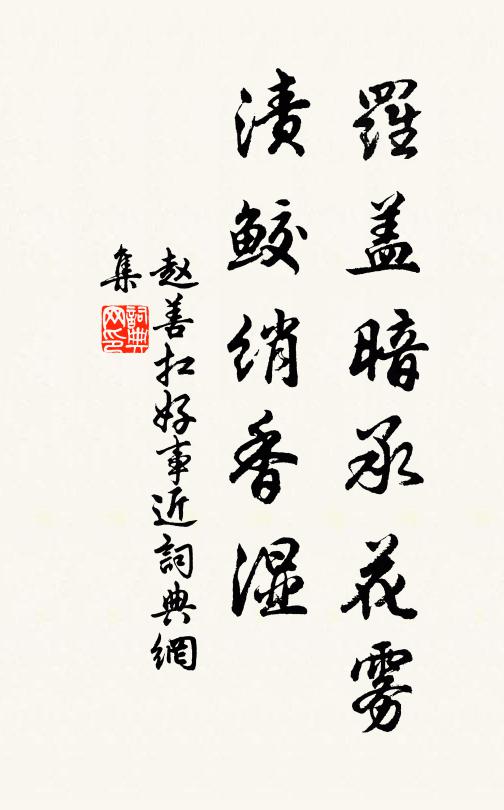 羅盖暗承花雾
渍鲛绡香湿
赵善扛好事近詞典網
集
詞典
网印